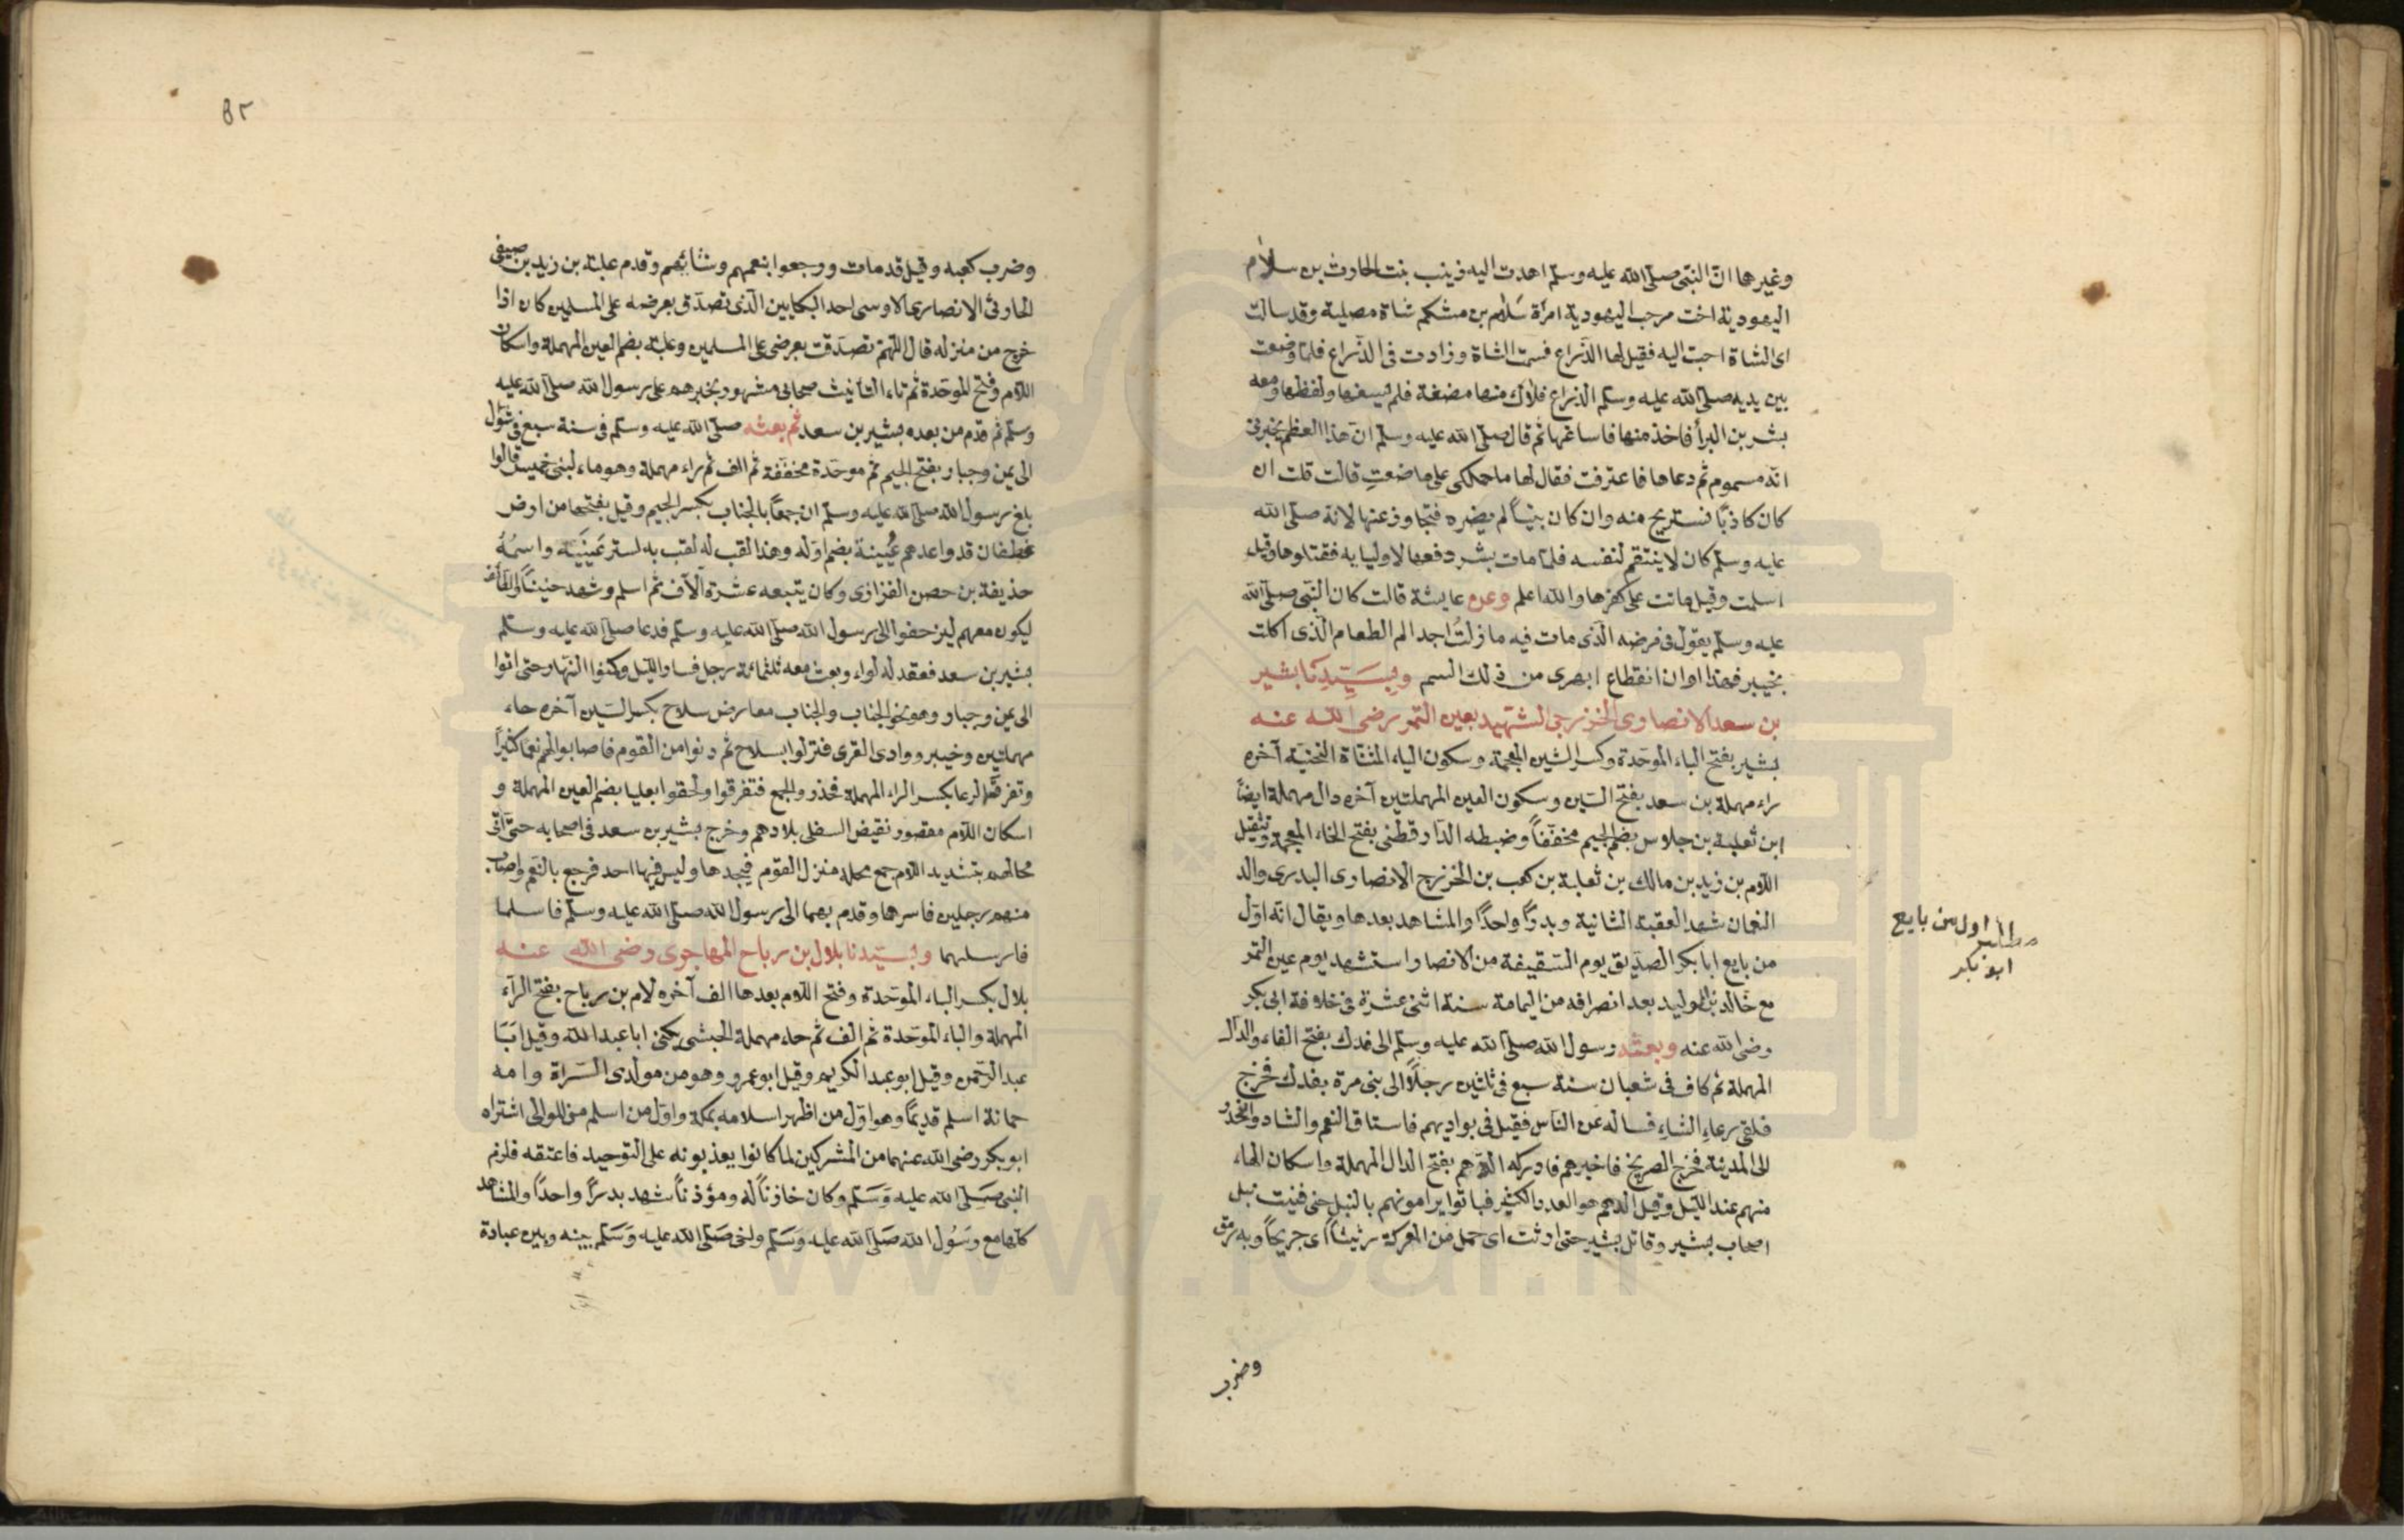 وغيرهما انّ النبّى صلّى الله عليه وسلّم اهدت اليه زينب بنت الحارث بن سلام
اليهودية اخت مرحب اليهودية امرأة سَلام بن مشكم شاة مصلية وقد سالت
اى الشاة احبّ اليه فقيل لها الذّراع فسمت الشاة وزادت فى الذّراع فلمّا وضعت
بين يديه صلّى الله عليه وسلّم الذراع فلاك منها مضغة فلم يسغها ولفظها ومعه
بشر بن البرأ فاخذ منها فاساغها ثم قال صلّى الله عليه وسلّم انّ هذا العظم يخبرنى
انّه مسموم ثم دعاها فاعترفت فقال لها ما حملكى على ما صنعتِ قالت قلت ان
كان كاذبًا نستريح منه وان كان نبيًّا لم يضره فتجاوز عنها لانه صلّى الله
عليه وسلّم كان لا ينتقم لنفسه فلمّا مات بشر دفعها لاوليا به فقتلوها وقيل
اسلمت وقيل ماتت على كفرها والله اعلم وعن عايشة قالت كان النّبى صلّى الله
عليه وسلّم يقول فى مرضه الّذى مات فيه ما زلتُ اجد الم الطعام الّذى اكلت
بخيبر فهذا اوان انقطاع ابهرى من ذلك السم وبِسَيّدِنا بشير
بن سعد الانصاوى الخزرجى الشهيد بعين التمر رضى الله عنه
بشير بفتح الباء الموحّدة وكسر الشين المعجمة وسكون الياء المثنّاة التحتيّة آخره
راء مهملة بن سعد بفتح السّين وسكون العين المهملتين آخره دال مهملة ايضًا
ابن ثعلبة بن جلاس بضم الجيم مخفّفًا وضبطه الدّارقطنى بفتح الخاء المعجمة وتثقيل
اللام بن زيد بن مالك بن ثعلبة بن كعب بن الخزرج الانصاوى البدرى والد
النعمان شهد العقبة الثانية وبدرًا واحدًا والمشاهد بعدها ويقال انّه اوّل
من بايع ابا بكر الصدّيق يوم السّقيفة من الانصار واستشهد يوم عين التمر
مع خالد بن الوليد بعد انصرافه من اليمامة سنة اثنى عشرة فى خلافة ابى بكر
رضى الله عنه وبعثه رسول الله صلّى الله عليه وسلّم الى فدك بفتح الفاء والدّال
المهملة ثم كاف فى شعبان سنة سبع فى ثلثين رجلًا الى بنى مرة بفدك فخرج
فلقى رعاء الشاءِ فساله عن الناس فقيل فى بواديهم فاستاق النعم والشاء وانحدر
الى المدينة فخرج الصريخ فاخبرهم فادركه الدّهم بفتح الدال المهملة واسكان الهاء
منهم عند اللّيل وقيل الدهم هو العدد الكثير فباتوا يرامونهم بالنبل حتى فنيت نبل
اصحاب بشير وقاتل بشير حتى ارتث اى حمل من المعركة رثيثًا اى جريحًا وبه رمق
اول من بايع
ابو بكر
وضرب
٨٢
وضرب كعبه وقيل قد مات ورجعوا بنعمهم وشائهم وقدم علبة بن زيد بن صيفى
الحارثى الانصارى الاوسى احد البكايين الّذى تصدّق بعرضه على المسلمين كان اذا
خرج من منزله قال اللّهمّ تصدّقت بعرضى على المسلمين وعلبة بضم العين المهملة واسكان
اللام وفتح الموحّدة ثم تاء التأنيث صحابى مشهور بخبرهم على رسول الله صلّى الله عليه
وسلّم ثم قدم من بعده بشير بن سعد ثم بعثه صلّى الله عليه وسلّم فى سنة سبع فى شوّال
الى يمن وجبار بفتح الجيم ثم موحّدة مخفّفة ثم الف ثم راء مهملة وهو ماء لبنى خميس قالوا
بلغ رسول الله صلّى الله عليه وسلّم ان جمعًا بالجناب بكسر الجيم وقيل بفتحها من ارض
غطفان قد واعدهم عُيينة بضم اوّله وهذا لقب له لقب به لستر عينَيْه واسمُهُ
حذيفة بن حصن الفزارى وكان يتبعه عشرة آلاف ثم اسلم وشهد حنينًا والطّائف
ليكون معهم ليزحفوا الى رسول الله صلّى الله عليه وسلّم فدعا صلّى الله عليه وسلّم
بشير بن سعد فعقد له لواء وبعث معه ثلثمائة رجل فساروا اللّيل وكمنوا النّهار حتى اتوا
الى يمن وجبار وهو نحو الجناب والجناب معارض سلاح بكسر السّين آخره حاء
مهملتين وخيبر ووادى القرى فنزلوا بسلاح ثم دنوا من القوم فاصابوا لهم نعمًا كثيرًا
وتفرّق الرعا بكسر الراء المهملة فحذروا الجمع فتفرقوا ولحقوا بعليا بضم العين المهملة و
اسكان اللام مقصور نقيض السفلى بلادهم وخرج بشير بن سعد فى اصحابه حتّى اتى
محالهم بتشديد اللام جمع محلة منزل القوم فيجدها وليس فيها احد فرجع بالنعم واصاب
منهم رجلين فاسرهما وقدم بهما الى رسول الله صلّى الله عليه وسلّم فاسلما
فارسلهما وبسيّدنا بلال بن رباح المهاجرى رضى الله عنه
بلال بكسر الباء الموحّدة وفتح اللام بعدها الف آخره لام بن رباح بفتح الرّاء
المهملة والباء الموحّدة ثم الف ثم حاء مهملة الحبشى يكنى ابا عبد الله وقيل ابَا
عبد الرّحمن وقيل ابو عبد الكريم وقيل ابو عمرو وهو من مولدى السّراة وامه
حمانة اسلم قديمًا وهو اوّل من اظهر اسلامه بمكة واوّل من اسلم من الموالى اشتراه
ابو بكر رضى الله عنهما من المشركين لما كانوا يعذبونه على التوحيد فاعتقه فلزم
النبى صَلّى الله عليه وَسَلّم وكان خازنًا له ومؤذنًا شهد بدرًا واحدًا والمشاهد
كلّها مع رسُول الله صَلّى الله عليه وَسَلّم واخى صَلّى الله عليه وَسَلّم بينه وبين عبادة